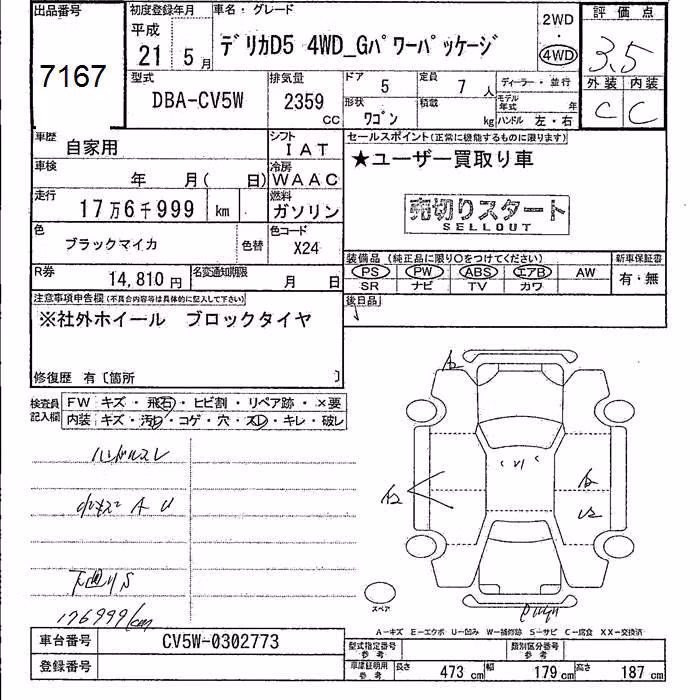 出品番号 初度登録年月 車名・グレード 2WD 評価点
7167 平成 21 5月 デリカD5 4WD_Gパワーパッケージ ・ 4WD 3.5
型式 排気量 ドア 定員 ディーラー・並行 外装 内装
DBA-CV5W 2359 CC 5 7人 モデル年式 年 C C
形状 ワゴン 積載 kg ハンドル 左・右
車歴 自家用 シフト IAT セールスポイント(正常に機能するものに限ります)
車検 年 月( 日) 冷房 WAAC ★ユーザー買取り車
走行 17万6千999 km 燃料 ガソリン 売切りスタート
SELLOUT
色 ブラックマイカ 色替 色コード X24
装備品(純正品に限り○をつけてください) 新車保証書
R券 14,810円 名変通知期限 月 日 PS PW ABS エアB AW 有・無
SR ナビ TV カワ
注意事項申告欄(不具合内容等は具体的に記入して下さい) 後日品
※社外ホイール ブロックタイヤ
修復歴 有〔箇所 〕
検査員記入欄 FW キズ・飛石・ヒビ割・リペア跡・×要
内装 キズ・汚れ・コゲ・穴・スレ・キレ・破レ
ハンドルスレ
A U
下廻りS
176999km
A2
A2
U2
スペア
A-キズ E-エクボ U-凹み W-補修跡 S-サビ C-腐食 XX-交換済
車台番号 CV5W-0302773 型式指定番号 参考 類別区分番号 参考
登録番号 車庫証明用 参考 長さ 473cm 幅 179cm 高さ 187cm